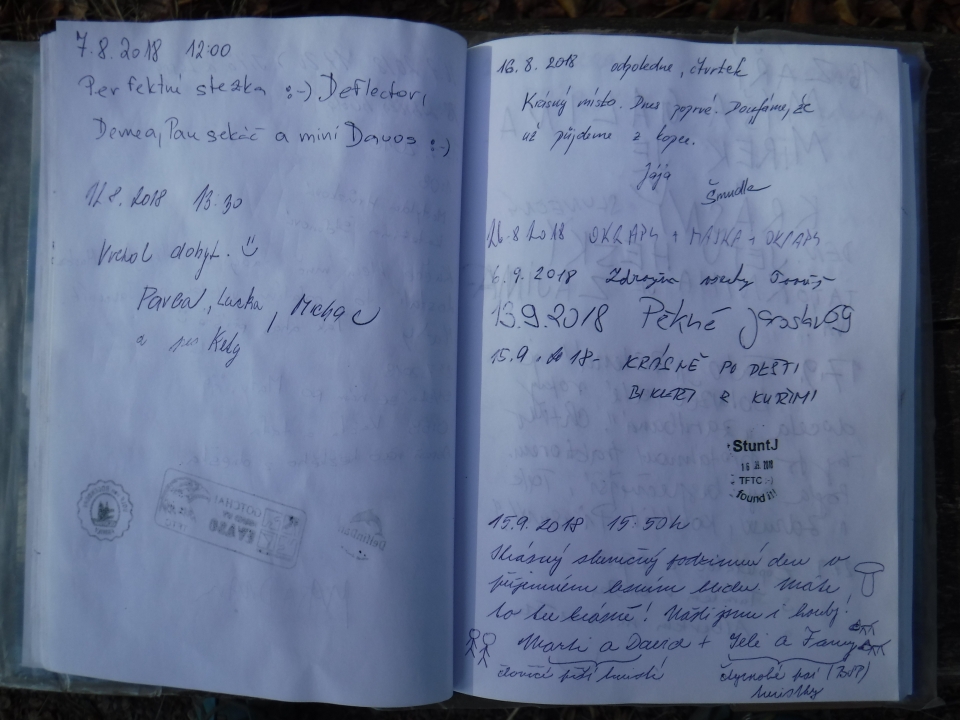 7.8.2018 12:00
Perfektní stezka :-) Deflector,
Demea, Pan sekáč a mini Davos :-)
12.8.2018 13:30
Vrchol dobyt.
Pavel, Lucka, Michal
a pes Kely
16.8.2018 odpoledne, čtvrtek
Krásný místo. Dnes poprvé. Doufáme, že
už půjdeme z kopce.
Jája
Šmudla
26.8 2018 OKRAPY + MASKA + OKRAPY
6.9.2018
13.9.2018 Pěkné jaroslav69
15.9. 18- KRÁSNĚ PO DEŠTI
BIKEŘI Z KUŘIMI
StuntJ
TFTC :-)
found it!
15.9.2018 15:50h
Krásný slunečný podzimní den v
příjemném lesním klidu. Máte
to tu krásné! Našli jsme i houby!
Marti a David + Jeli a Fany
človíčí pěší
čtyřnohé psí